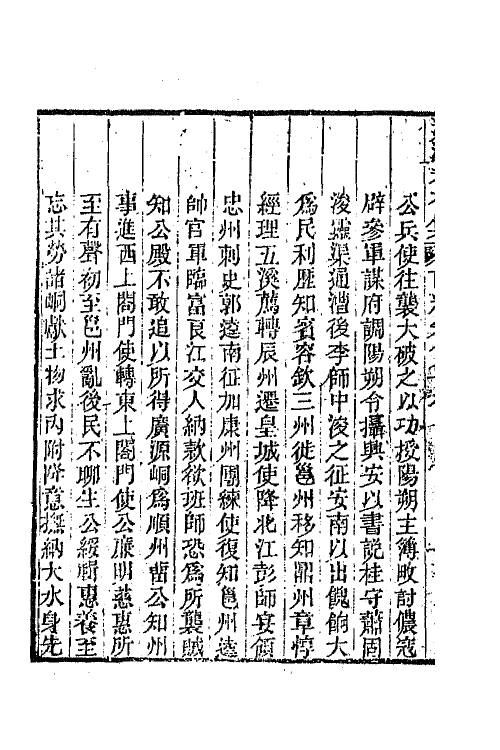 公兵使往襲大破之以功授陽朔主簿畋討儂寇
辟參軍謀府調陽朔令攝興安以書說桂守蕭固
浚靈渠通漕後李師中浚之征安南以出餽餉大
爲民利歷知賓容欽三州徙邕州移知鼎州章惇
經理五溪薦轉辰州遷皇城使降北江彭師宴領
忠州刺史郭逵南征加康州團練使復知邕州逵
帥官軍臨富良江交人納款欲班師恐爲所襲賊
知公殿不敢追以所得廣源峒爲順州畱公知州
事進西上閤門使轉東上閤門使公廉明慈惠所
至有聲初至邕州亂後民不聊生公綏輯惠養至
忘其勞諸峒獻土物求內附降意撫納大水身先